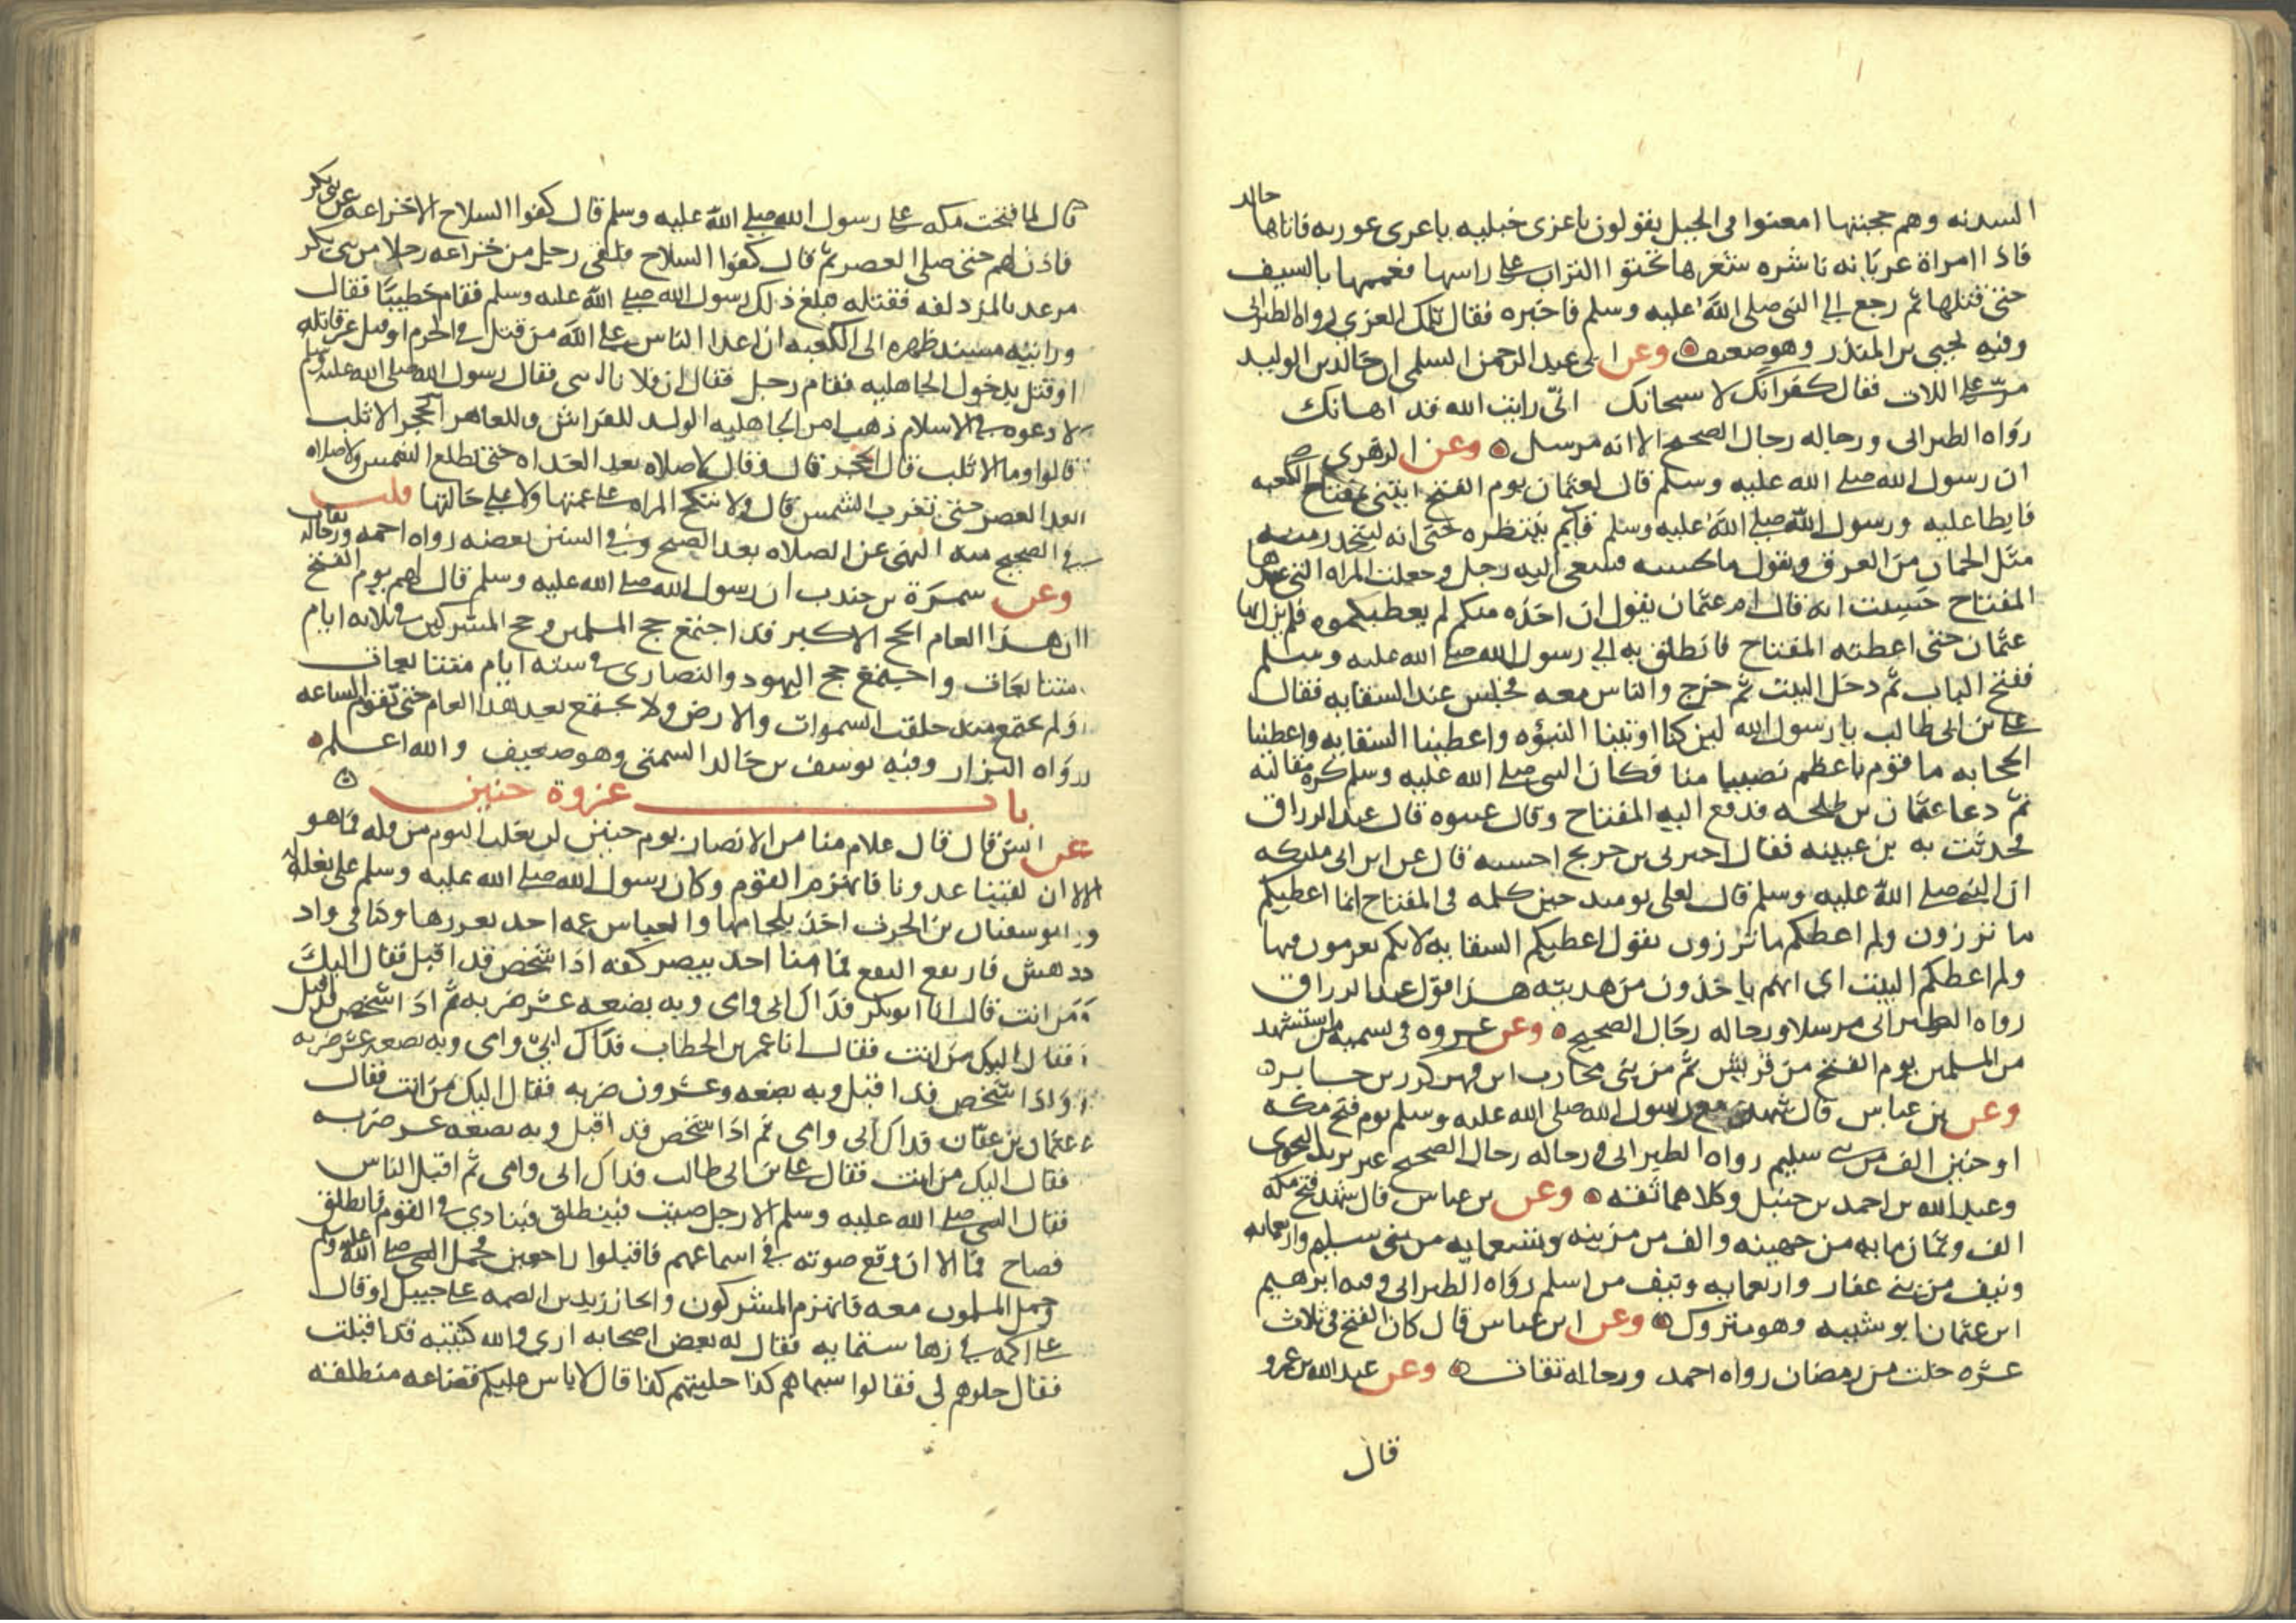 السدنه وهم حجبتها امعنوا فى الجبل يقولون ياعزى خبليه ياعزى عوريه فاتاها خالد
فاذا امراة عريانه ناشره شعرها تحثوا التراب على راسها فعممها بالسيف
حتى قتلها ثم رجع الى النبى صلى الله عليه وسلم فاخبره فقال تلك العزى رواه الطبرانى
وفيه يحيى بن المنذر وهو ضعيف وعن ابى عبد الرحمن السلمى ان خالد بن الوليد
مر على اللات فقال كفرانك لا سبحانك انى رايت الله قد اهانك
رواه الطبرانى ورجاله رجال الصحيح الا انه مرسل وعن الزهرى
ان رسول الله صلى الله عليه وسلم قال لعثمان يوم الفتح ايتنى بمفتاح الكعبه
فابطا عليه ورسول الله صلى الله عليه وسلم قايم ينتظره حتى انه ليتحدر منه
مثل الجمان من العرق ويقول ما يحبسه فسعى اليه رجل وجعلت المراه التى عندها
المفتاح حسبت انه قال ام عثمان يقول ان اخذه منكم لم يعطيكموه فلم يزل بها
عثمان حتى اعطته المفتاح فانطلق به الى رسول الله صلى الله عليه وسلم
ففتح الباب ثم دخل البيت ثم خرج والناس معه فجلس عند السقايه فقال
على بن ابى طالب يا رسول الله لين كنا اوتينا النبؤه واعطينا السقايه واعطينا
الحجابه ما قوم باعظم نصيبا منا فكان النبى صلى الله عليه وسلم كره مقالته
ثم دعا عثمان بن طلحه فدفع اليه المفتاح وقال غيبوه قال عبد الرزاق
فحدثت به بن عيينه فقال اخبرنى بن جريج احسبه قال عن ابن ابى مليكه
ان النبى صلى الله عليه وسلم قال لعلى يوميد حين كلمه فى المفتاح انما اعطيكم
ما ترزون ولم اعطكم ما ترزون يقول اعطيكم السقايه لانكم تغرمون فيها
ولم اعطكم البيت اى انهم ياخذون من هديته هذا قول عبد الرزاق
رواه الطبرانى مرسلا ورجاله رجال الصحيح وعن عروه فى تسميه من استشهد
من المسلمين يوم الفتح من قريش ثم من بنى محارب ابن فهر كرز بن جابر
وعن بن عباس قال شهد مع رسول الله صلى الله عليه وسلم يوم فتح مكه
او حنين الف من بنى سليم رواه الطبرانى ورجاله رجال الصحيح غير يزيد النحوى
وعبد الله بن احمد بن حنبل وكلاهما ثقه وعن بن عباس قال شهد فتح مكه
الف وثمان مايه من جهينه والف من مزينه وتسعمايه من بنى سليم واربعمايه
ونيف من بنى غفار واربعمايه ونيف من اسلم رواه الطبرانى وفيه ابرهيم
ابن عثمان ابو شيبه وهو متروك وعن ابن عباس قال كان الفتح فى ثلاث
عشره خلت من رمضان رواه احمد ورجاله ثقات وعن عبد الله بن عمرو
قال
قال لما فتحت مكه على رسول الله صلى الله عليه وسلم قال كفوا السلاح الا خزاعه عن بنى بكر
فاذن لهم حتى صلى العصر ثم قال كفوا السلاح فلقى رجل من خزاعه رجلا من بنى بكر
من غد بالمزدلفه فقتله فبلغ ذلك رسول الله صلى الله عليه وسلم فقام خطيبا فقال
ورايته مسند ظهره الى الكعبه ان اعدا الناس على الله من قتل فى الحرم او قتل غير قاتله
او قتل بدخول الجاهليه فقام رجل فقال ان فلانا ابنى فقال رسول الله صلى الله عليه وسلم
لا دعوه فى الاسلام ذهب امر الجاهليه الولد للفراش وللعاهر الحجر الاثلب
قالوا وما الاثلب قال الحجر قال وقال لا صلاه بعد الغداه حتى تطلع الشمس ولا صلاه
بعد العصر حتى تغرب الشمس قال ولا تنكح المراه على عمتها ولا على خالتها قلت
فى الصحيح منه النهى عن الصلاه بعد الصبح وفى السنن بعضه رواه احمد ورجاله ثقات
وعن سمرة بن جندب ان رسول الله صلى الله عليه وسلم قال لهم يوم الفتح
ان هذا العام الحج الاكبر قد اجتمع حج المسلمين وحج المشركين فى ثلاثه ايام
متتابعات واجتمع حج اليهود والنصارى فى سته ايام متتابعات
ولم يجتمع منذ خلقت السموات والارض ولا يجتمع بعد هذا العام حتى تقوم الساعه
رواه البزار وفيه يوسف بن خالد السمتى وهو ضعيف والله اعلم
باب غزوة حنين
عن انس قال قال غلام منا من الانصار يوم حنين لن نغلب اليوم من قله فما هو
الا ان لقينا عدونا فانهزم القوم وكان رسول الله صلى الله عليه وسلم على بغله
وابو سفيان بن الحرث اخذ بلجامها والعباس عمه اخذ بغرزها وكنا فى واد
دهش فارتفع النقع فما منا احد يبصر كفه اذا شخص قد اقبل فقال اليك
من انت قال انا ابو بكر فداك ابى وامى وبه بضعه عشر ضربه ثم اذا شخص قد اقبل
فقال اليك من انت فقال انا عمر بن الخطاب فداك ابى وامى وبه بضعه عشر ضربه
واذا شخص قد اقبل وبه بضعه وعشرون ضربه فقال اليك من انت فقال
عثمان بن عفان فداك ابى وامى ثم اذا شخص قد اقبل وبه بضعه عشر ضربه
فقال اليك من انت فقال على بن ابى طالب فداك ابى وامى ثم اقبل الناس
فقال النبى صلى الله عليه وسلم الا رجل صيت فينطلق فينادى فى القوم فانطلق
فصاح فما الا ان وقع صوته فى اسماعهم فاقبلوا راجعين فحمل النبى صلى الله عليه وسلم
وحمل المسلمون معه فانهزم المشركون وانحاز زيد بن الصمه على جبيل او قال
على اكمه فى زها ستمايه فقال له بعض اصحابه ارى والله كتيبه قد اقبلت
فقال حلوهم لى فقالوا سيماهم كذا حليتهم كذا قال لا باس عليكم قضاعه منطلقه